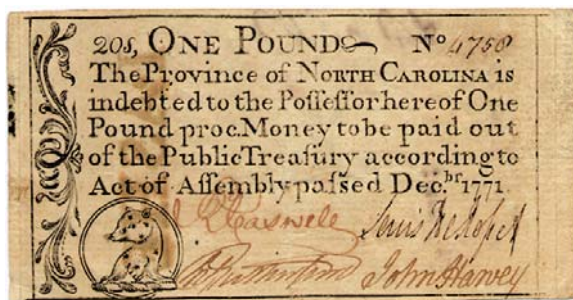 20s, ONE POUND No 4758
The Province of NORTH CAROLINA is
indebted to the Poſſeſſor hereof One
Pound proc. Money to be paid out
of the Public Treaſury according to
Act of Aſſembly paſſed Dec.br 1771
R Caswell Lewis De Rosset
Rutherfurd John Harvey